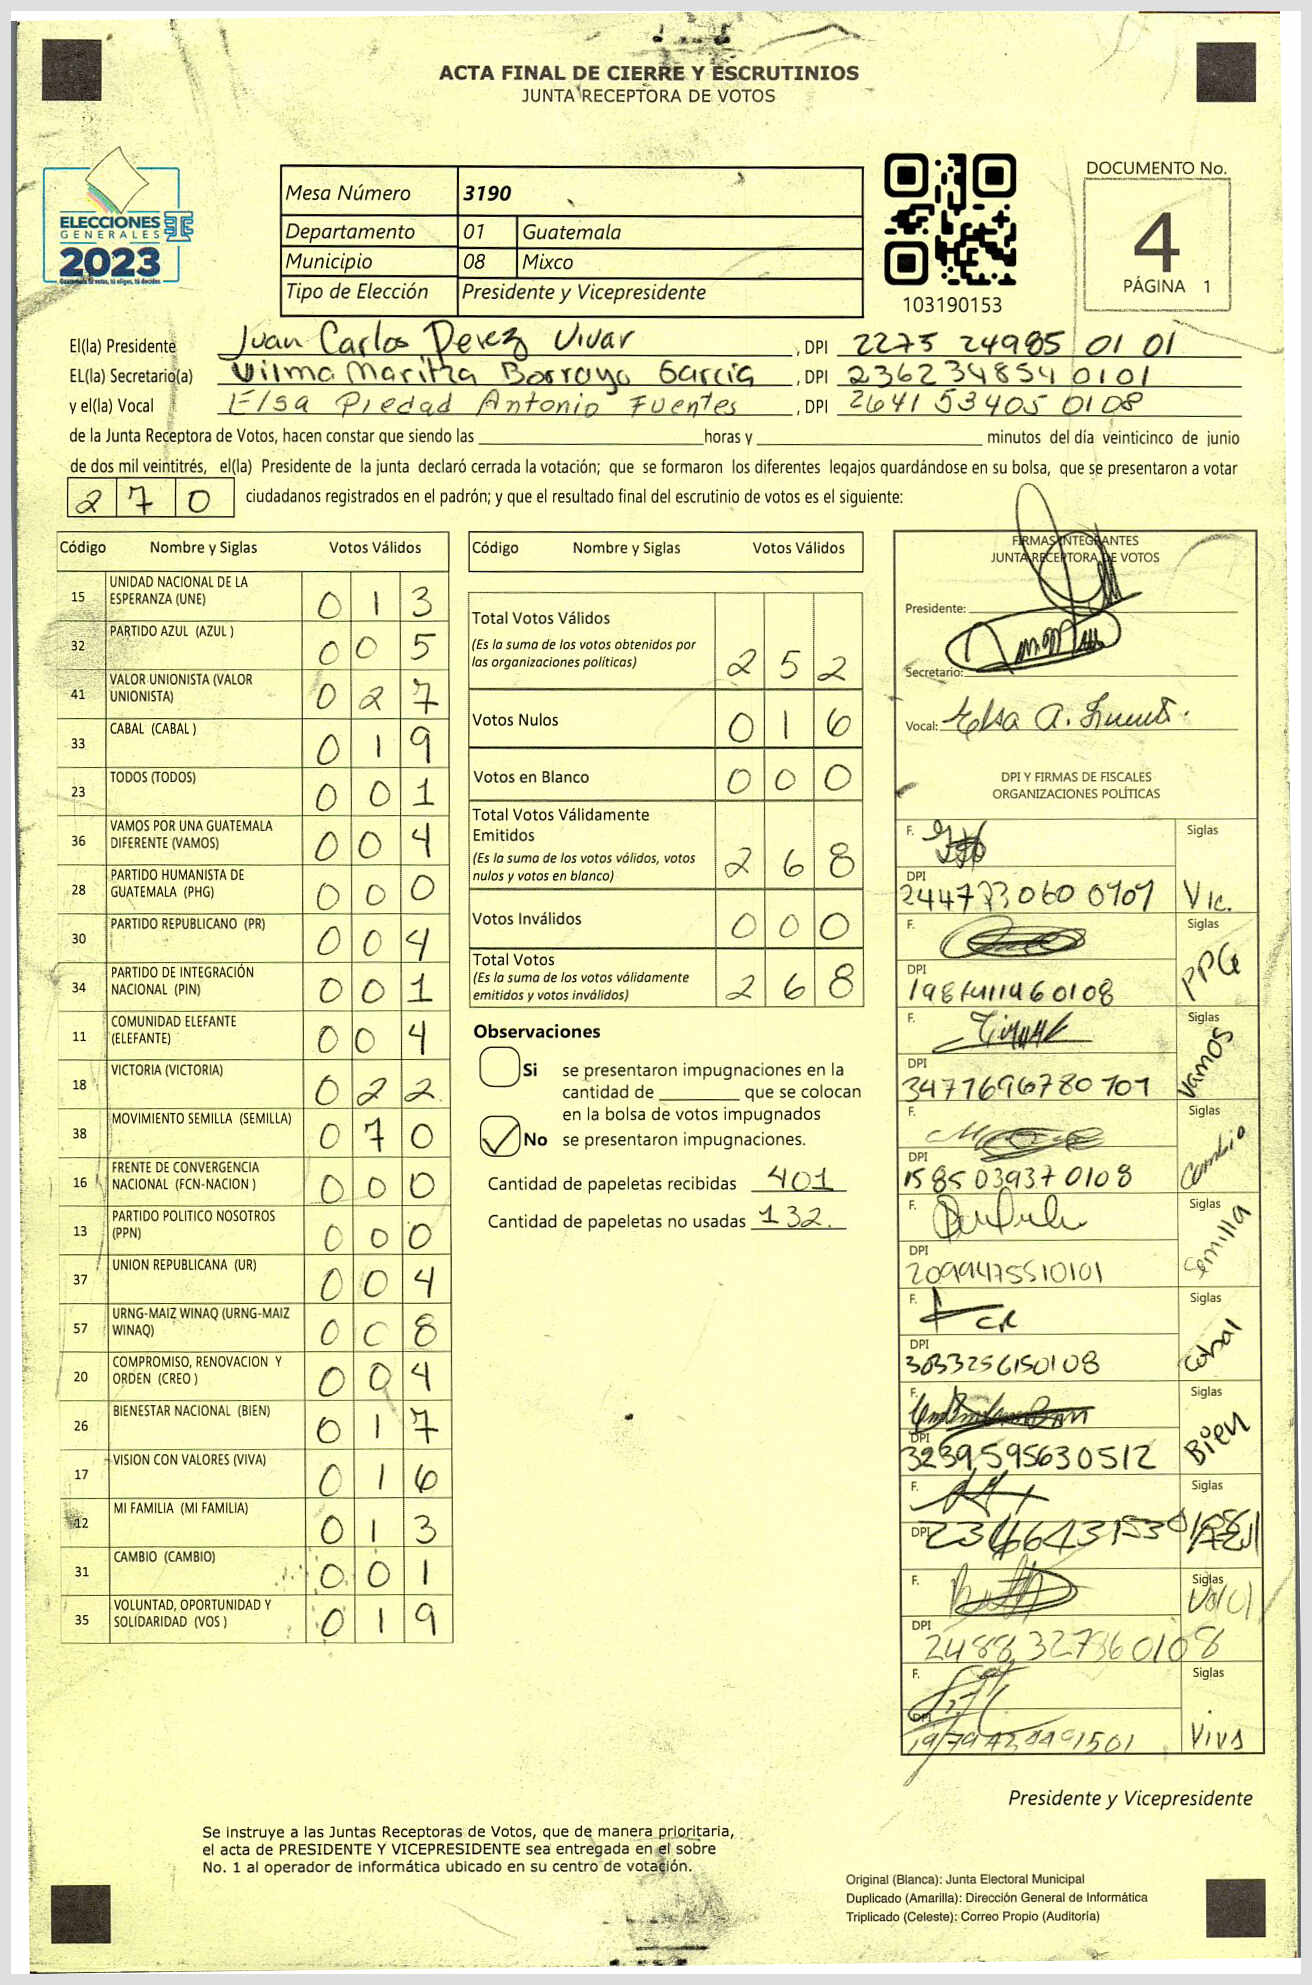 ACTA FINAL DE CIERRE Y ESCRUTINIOS
JUNTA RECEPTORA DE VOTOS
ELECCIONES
GENERALES
2023
Guatemala tú votas, tú eliges, tú decides
Mesa Número 3190
Departamento 01 Guatemala
Municipio 08 Mixco
Tipo de Elección Presidente y Vicepresidente
103190153
DOCUMENTO No.
4
PÁGINA 1
El(la) Presidente Juan Carlos Perez Vivar , DPI 2275 24985 01 01
EL(la) Secretario(a) Vilma Maritza Borrayo Garcia , DPI 236234854 0101
y el(la) Vocal Elsa Piedad Antonio Fuentes , DPI 264153405 0108
de la Junta Receptora de Votos, hacen constar que siendo las horas y minutos del día veinticinco de junio
de dos mil veintitrés, el(la) Presidente de la junta declaró cerrada la votación; que se formaron los diferentes legajos guardándose en su bolsa, que se presentaron a votar
270 ciudadanos registrados en el padrón; y que el resultado final del escrutinio de votos es el siguiente:
Código Nombre y Siglas Votos Válidos
15 UNIDAD NACIONAL DE LA ESPERANZA (UNE) 0 1 3
32 PARTIDO AZUL (AZUL ) 0 0 5
41 VALOR UNIONISTA (VALOR UNIONISTA) 0 2 7
33 CABAL (CABAL ) 0 1 9
23 TODOS (TODOS) 0 0 1
36 VAMOS POR UNA GUATEMALA DIFERENTE (VAMOS) 0 0 4
28 PARTIDO HUMANISTA DE GUATEMALA (PHG) 0 0 0
30 PARTIDO REPUBLICANO (PR) 0 0 4
34 PARTIDO DE INTEGRACIÓN NACIONAL (PIN) 0 0 1
11 COMUNIDAD ELEFANTE (ELEFANTE) 0 0 4
18 VICTORIA (VICTORIA) 0 2 2
38 MOVIMIENTO SEMILLA (SEMILLA) 0 7 0
16 FRENTE DE CONVERGENCIA NACIONAL (FCN-NACION ) 0 0 0
13 PARTIDO POLITICO NOSOTROS (PPN) 0 0 0
37 UNION REPUBLICANA (UR) 0 0 4
57 URNG-MAIZ WINAQ (URNG-MAIZ WINAQ) 0 0 8
20 COMPROMISO, RENOVACION Y ORDEN (CREO ) 0 0 4
26 BIENESTAR NACIONAL (BIEN) 0 1 7
17 VISION CON VALORES (VIVA) 0 1 6
12 MI FAMILIA (MI FAMILIA) 0 1 3
31 CAMBIO (CAMBIO) 0 0 1
35 VOLUNTAD, OPORTUNIDAD Y SOLIDARIDAD (VOS ) 0 1 9
Código Nombre y Siglas Votos Válidos
Total Votos Válidos
(Es la suma de los votos obtenidos por
las organizaciones políticas) 2 5 2
Votos Nulos 0 1 6
Votos en Blanco 0 0 0
Total Votos Válidamente
Emitidos
(Es la suma de los votos válidos, votos
nulos y votos en blanco) 2 6 8
Votos Inválidos 0 0 0
Total Votos
(Es la suma de los votos válidamente
emitidos y votos inválidos) 2 6 8
Observaciones
Si se presentaron impugnaciones en la
cantidad de que se colocan
en la bolsa de votos impugnados
No se presentaron impugnaciones.
Cantidad de papeletas recibidas 401
Cantidad de papeletas no usadas 132
FIRMAS INTEGRANTES
JUNTA RECEPTORA DE VOTOS
Presidente:
Secretario:
Vocal: Elsa A. Fuentes.
DPI Y FIRMAS DE FISCALES
ORGANIZACIONES POLÍTICAS
F. Siglas
DPI Vic.
F. Siglas
DPI PPG
F. Siglas
DPI 3477696780101 Vamos
F. Siglas
DPI 1585 03937 0108 Cambio
F. Siglas
DPI 2099475510101 Semilla
F. CR Siglas
DPI 3033256150108 Cabal
F. Siglas
DPI 3239595630512 Bien
F. Siglas
DPI Azul
F. Siglas
DPI 2488327860108
F. Siglas
DPI Viva
Presidente y Vicepresidente
Se instruye a las Juntas Receptoras de Votos, que de manera prioritaria,
el acta de PRESIDENTE Y VICEPRESIDENTE sea entregada en el sobre
No. 1 al operador de informática ubicado en su centro de votación.
Original (Blanca): Junta Electoral Municipal
Duplicado (Amarilla): Dirección General de Informática
Triplicado (Celeste): Correo Propio (Auditoría)